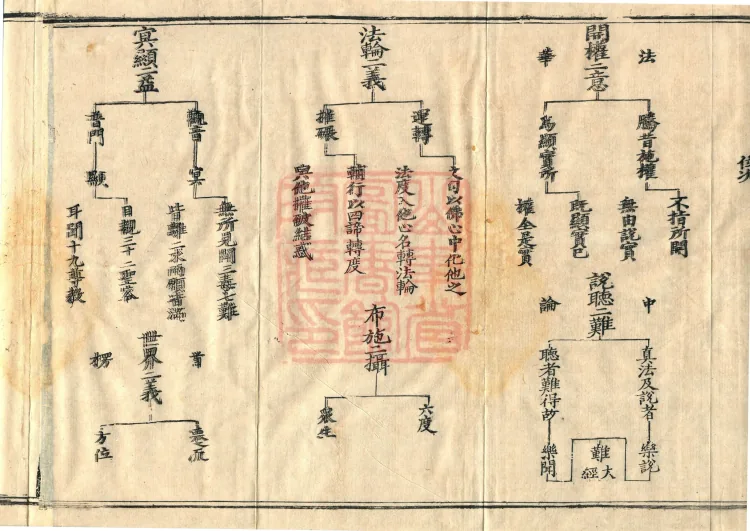 開權二意
法
騰昔施權
不指所開
無由說實
華
為顯實所
既顯實已
權全是實
說聽二難
中
真法及說者
樂說
論
聽者難得故
樂聞
大經
難
法輪二義
運轉
文可以諦心中化他之
法度入他心名轉法輪
摧碾
輔行以四諦轉度
與他摧破結惑
布施二攝
六度
眾生
冥顯二益
觀音
冥
無所見聞三毒七難
皆離二求兩願皆滿
普門
顯
目觀三十二聖容
耳聞十九尊教
世界二義
楞
方位